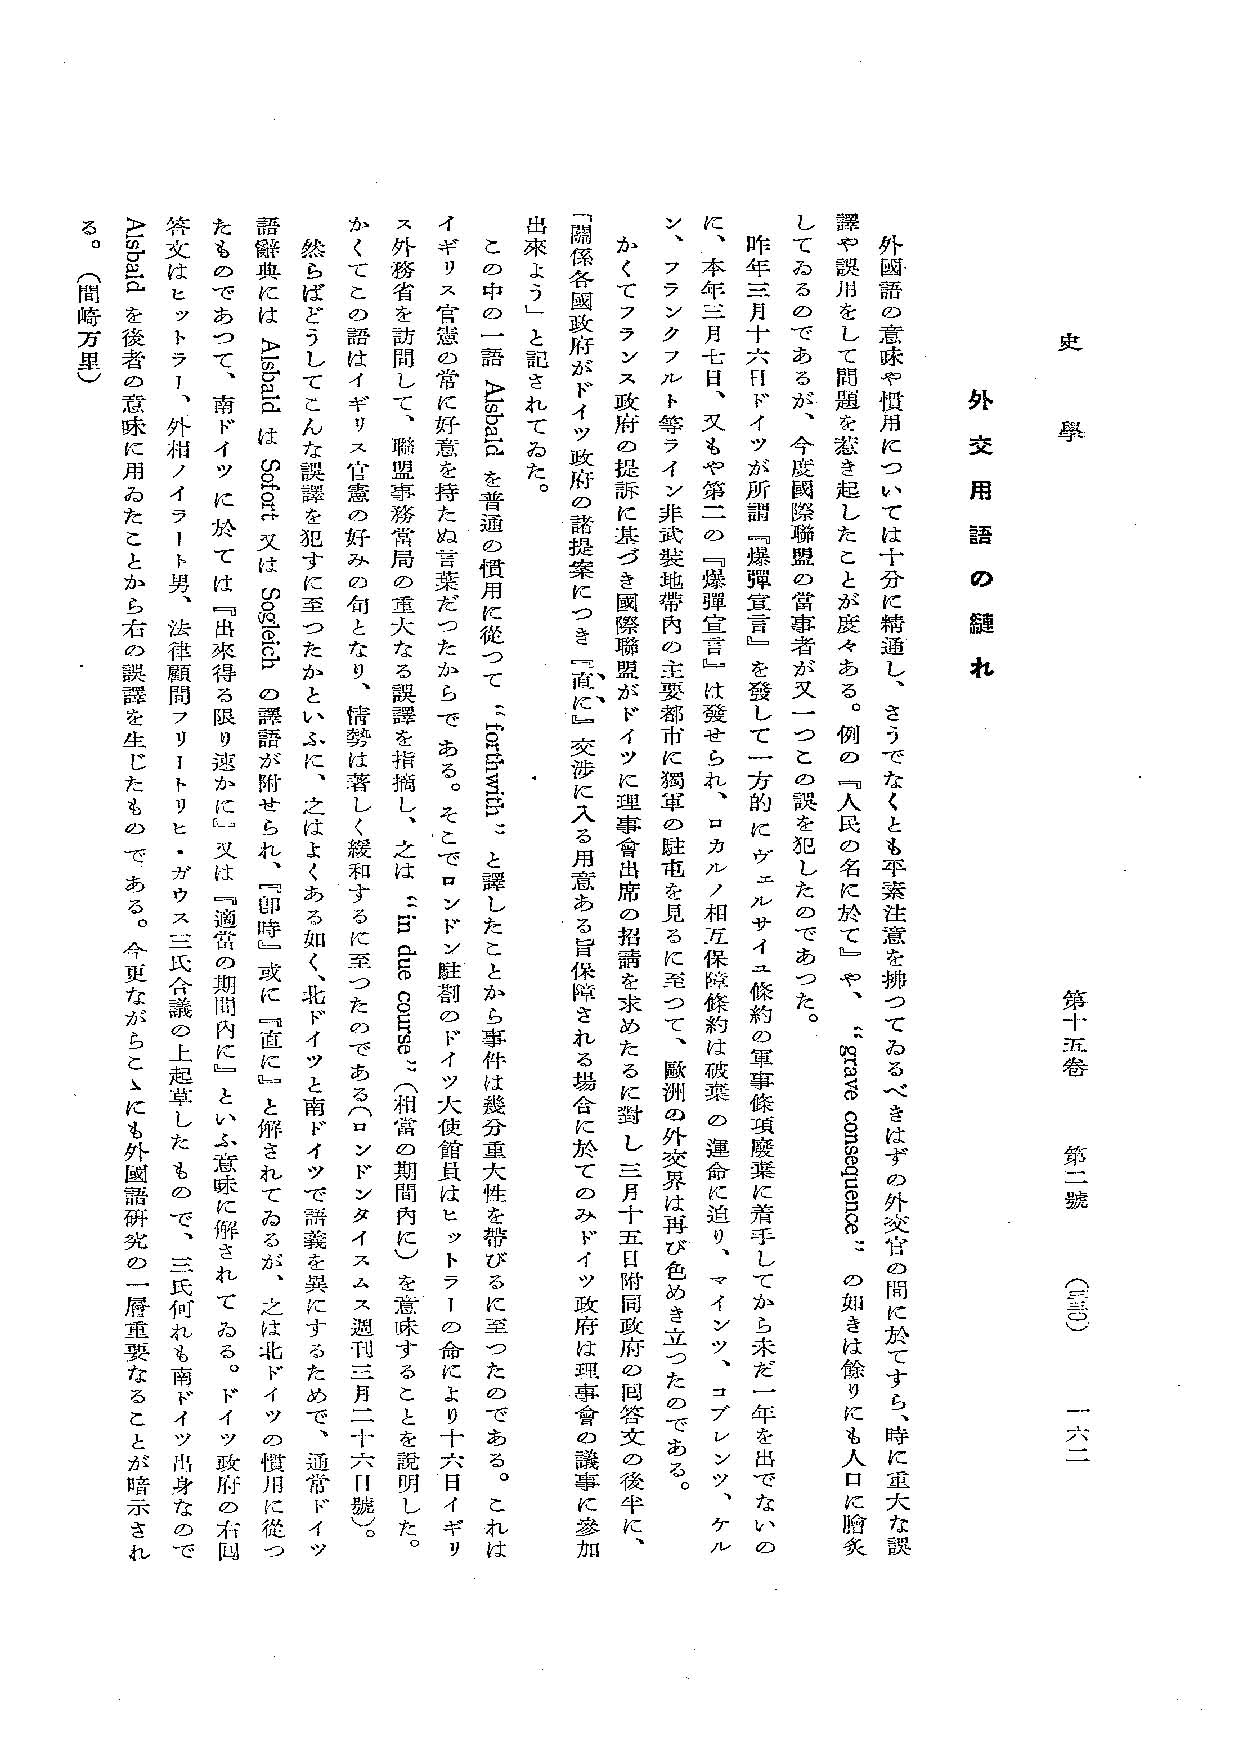 史學　第十五卷　第二號　（三三〇）　一六二
外交用語の縺れ
外國語の意味や慣用については十分に精通し、さうでなくとも平素注意を拂つてゐるべきはずの外交官の間に於てすら、時に重大な誤
譯や誤用をして問題を惹き起したことが度々ある。例の『人民の名に於て』や、“grave consequence” の如きは餘りにも人口に膾炙
してゐるのであるが、今度國際聯盟の當事者が又一つこの誤を犯したのであつた。
昨年三月十六日ドイツが所謂『爆彈宣言』を發して一方的にヴェルサイユ條約の軍事條項廢棄に着手してから未だ一年を出でないの
に、本年三月七日、又もや第二の『爆彈宣言』は發せられ、ロカルノ相互保障條約は破棄の運命に迫り、マインツ、コブレンツ、ケル
ン、フランクフルト等ライン非武裝地帶内の主要都市に獨軍の駐屯を見るに至つて、歐洲の外交界は再び色めき立つたのである。
かくてフランス政府の提訴に基づき國際聯盟がドイツに理事會出席の招請を求めたるに對し三月十五日附同政府の回答文の後半に、
「關係各國政府がドイツ政府の諸提案につき『直に』交渉に入る用意ある旨保障される場合に於てのみドイツ政府は理事會の議事に參加
出來よう」と記されてゐた。
この中の一語 Alsbald を普通の慣用に從つて “forthwith” と譯したことから事件は幾分重大性を帶びるに至つたのである。これは
イギリス官憲の常に好意を持たぬ言葉だつたからである。そこでロンドン駐剳のドイツ大使館員はヒットラーの命により十六日イギリ
ス外務省を訪問して、聯盟事務當局の重大なる誤譯を指摘し、之は “in due course”（相當の期間内に）を意味することを説明した。
かくてこの語はイギリス官憲の好みの句となり、情勢は著しく緩和するに至つたのである（ロンドンタイムス週刊三月二十六日號）。
然らばどうしてこんな誤譯を犯すに至つたかといふに、之はよくある如く、北ドイツと南ドイツで語義を異にするためで、通常ドイツ
語辭典には Alsbald は Sofort 又は Sogleich の譯語が附せられ、『即時』或に『直に』と解されてゐるが、之は北ドイツの慣用に從つ
たものであつて、南ドイツに於ては『出來得る限り速かに』又は『適當の期間内に』といふ意味に解されてゐる。ドイツ政府の右回
答文はヒットラー、外相ノイラート男、法律顧問フリートリヒ・ガウス三氏合議の上起草したもので、三氏何れも南ドイツ出身なので
Alsbald を後者の意味に用ゐたことから右の誤譯を生じたものである。今更ながらこゝにも外國語研究の一層重要なることが暗示され
る。（間崎万里）